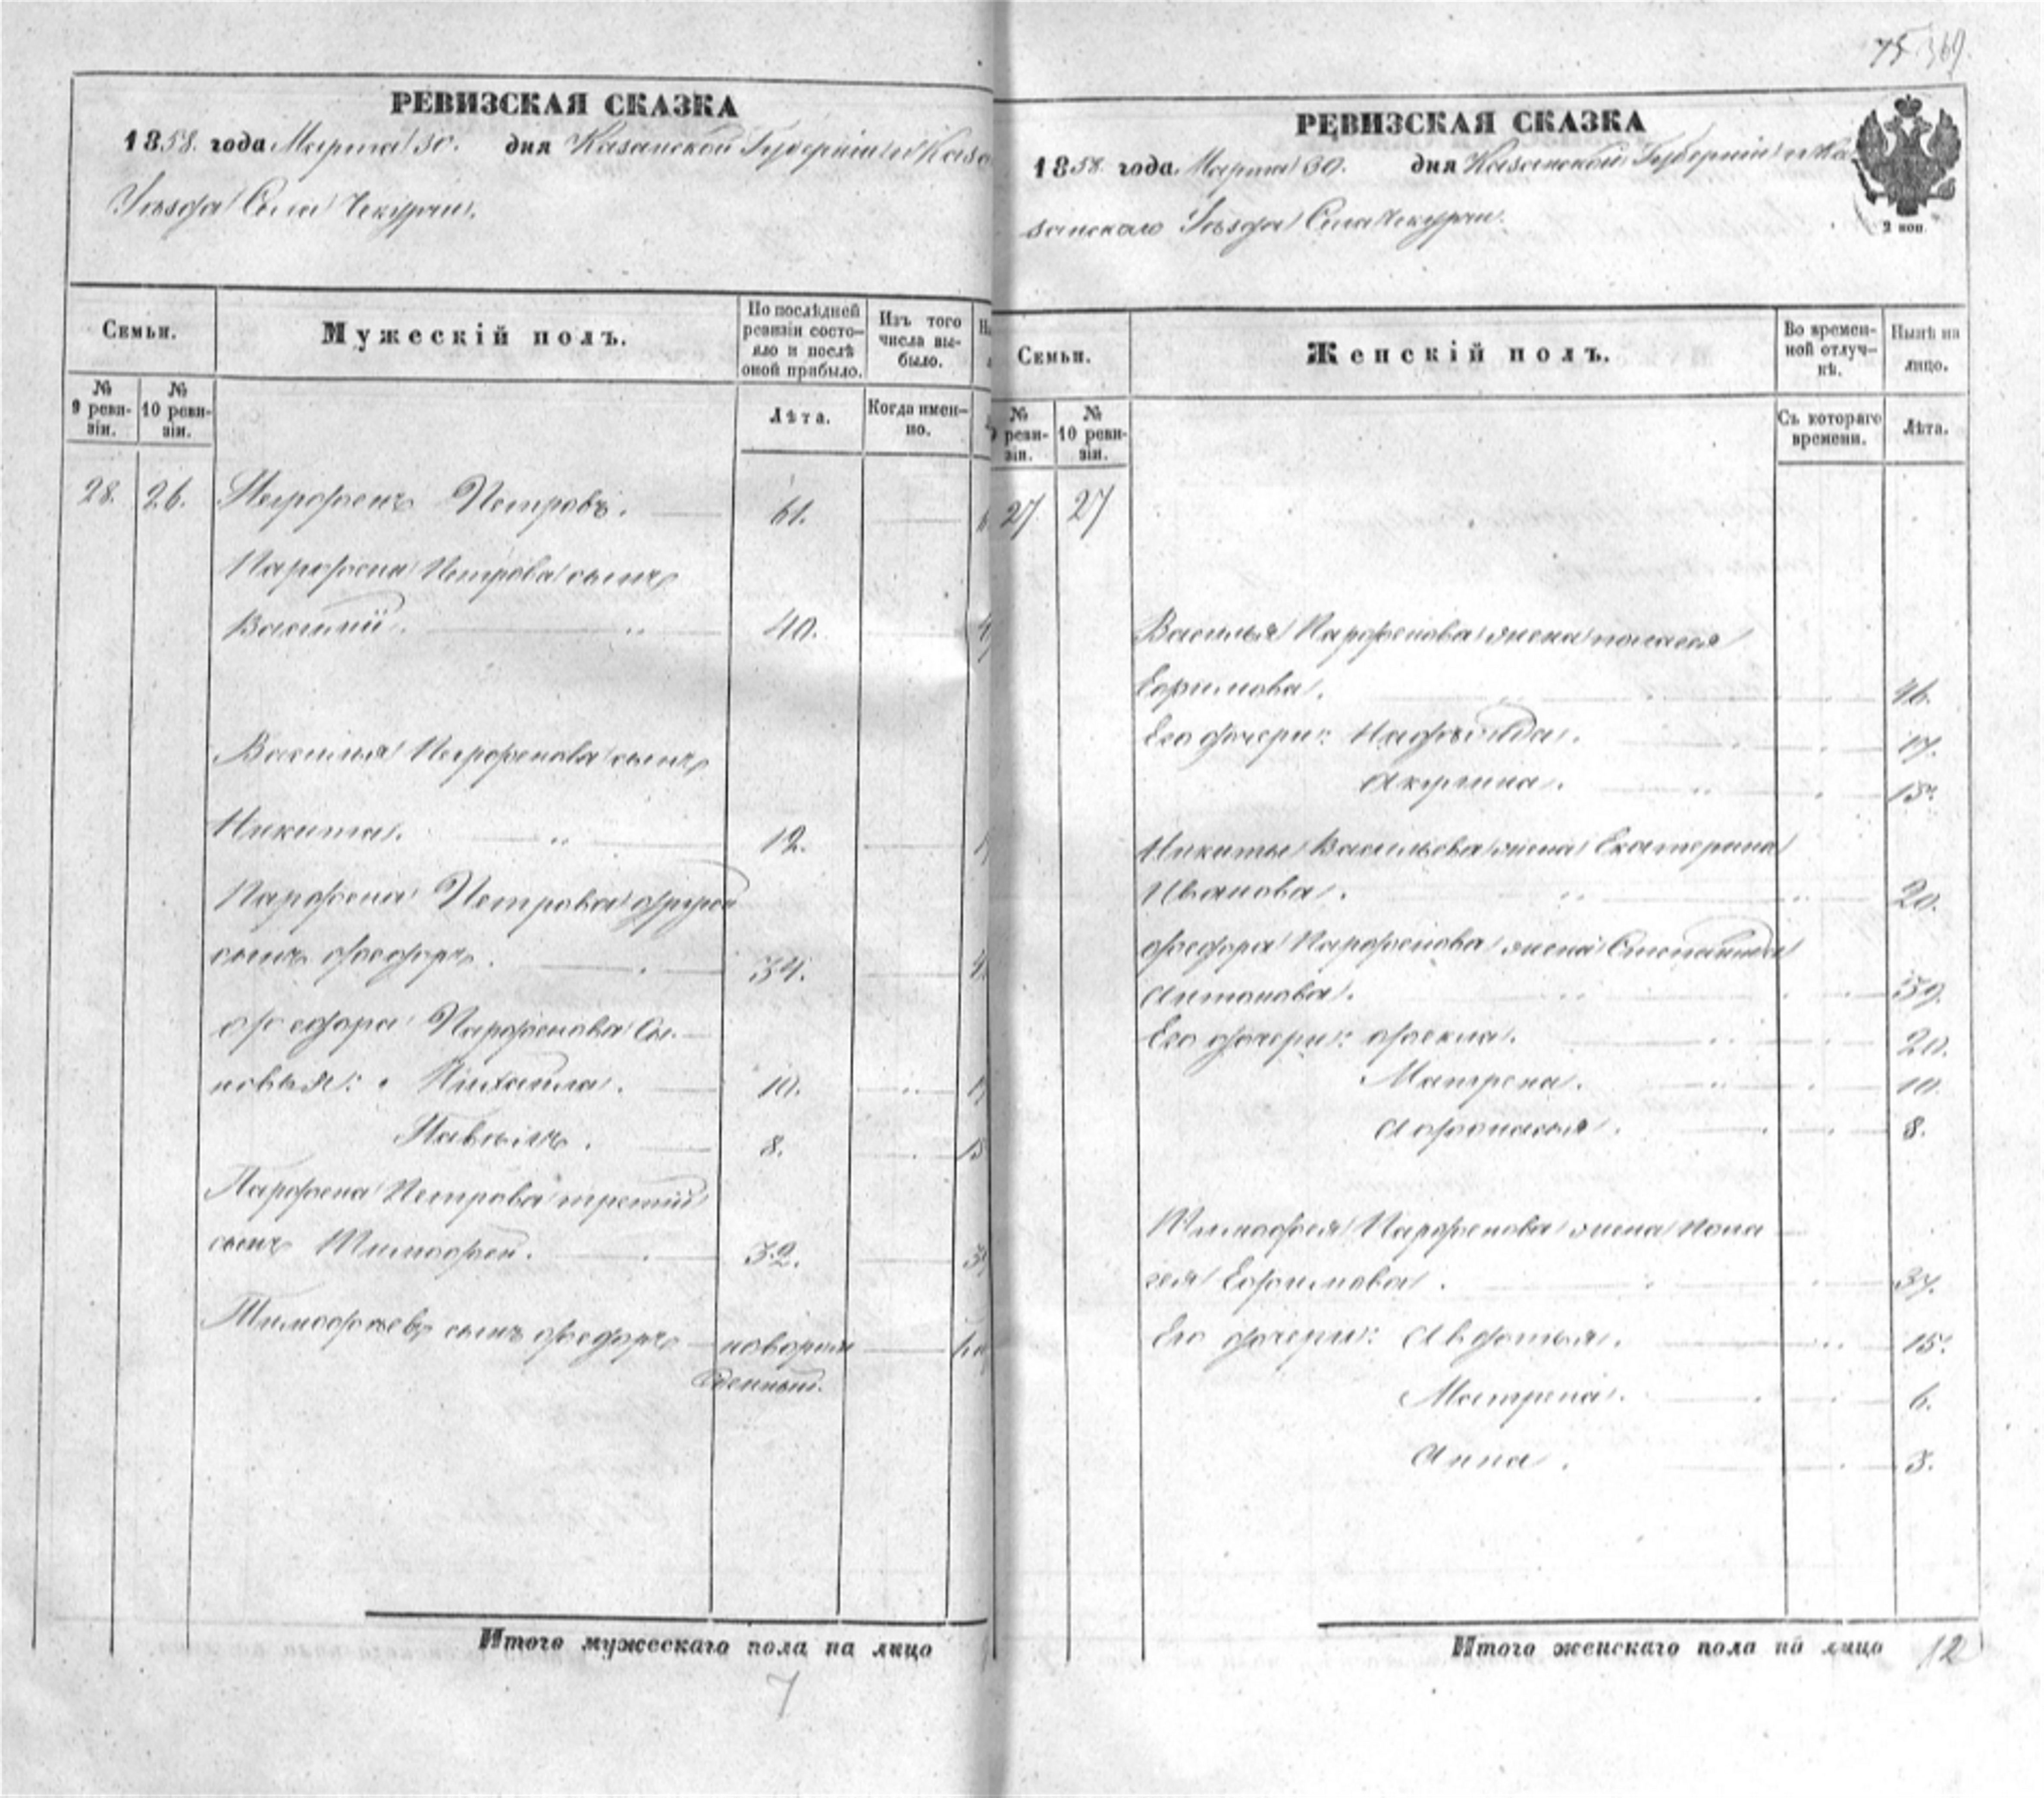 75 369
РЕВИЗСКАЯ СКАЗКА
1858. года Марта 30. дня Казанской Губерніи и Каза
Уѣзда Села Чекурчи.
Семьи.
Мужескій полъ.
По послѣдней ревизіи состояло и послѣ оной прибыло.
Изъ того числа выбыло.
№ 9 ревизіи.
№ 10 ревизіи.
Лѣта.
Когда именно.
28. 26. Парфенъ Петровъ. 61.
Парфена Петрова сынъ
Василій. 40.
Василья Парфенова сынъ
Никита. 12.
Парфена Петрова другой
сынъ Федоръ. 34.
Федора Парфенова Сы-
новья: Михайла. 10.
Павелъ. 8.
Парфена Петрова третій
сынъ Тимофей. 32.
Тимофеевъ сынъ Федоръ новорож
денный.
Итого мужескаго пола на лицо
7
РЕВИЗСКАЯ СКАЗКА
1858. года Марта 30. дня Казанской Губерніи и Ка
занскаго Уѣзда Села Чекурчи.
2 коп.
Семьи.
Женскій полъ.
Во временной отлучкѣ.
Нынѣ на лицо.
№ ревизіи.
№ 10 ревизіи.
Съ котораго времени.
Лѣта.
27. 27
Василья Парфенова жена Пелагея
Ефимова. 46.
Его дочери: Надежда. 17.
Акулина. 13.
Никиты Васильева жена Екатерина
Иванова. 20.
Федора Парфенова жена Степанида
Антонова. 39.
Его дочери: Фекла. 20.
Матрена. 10.
Афонасья. 8.
Тимофея Парфенова жена Пела
гея Ефимова. 37.
Его дочери: Авдотья. 15.
Матрена. 6.
Анна. 3.
Итого женскаго пола на лицо 12